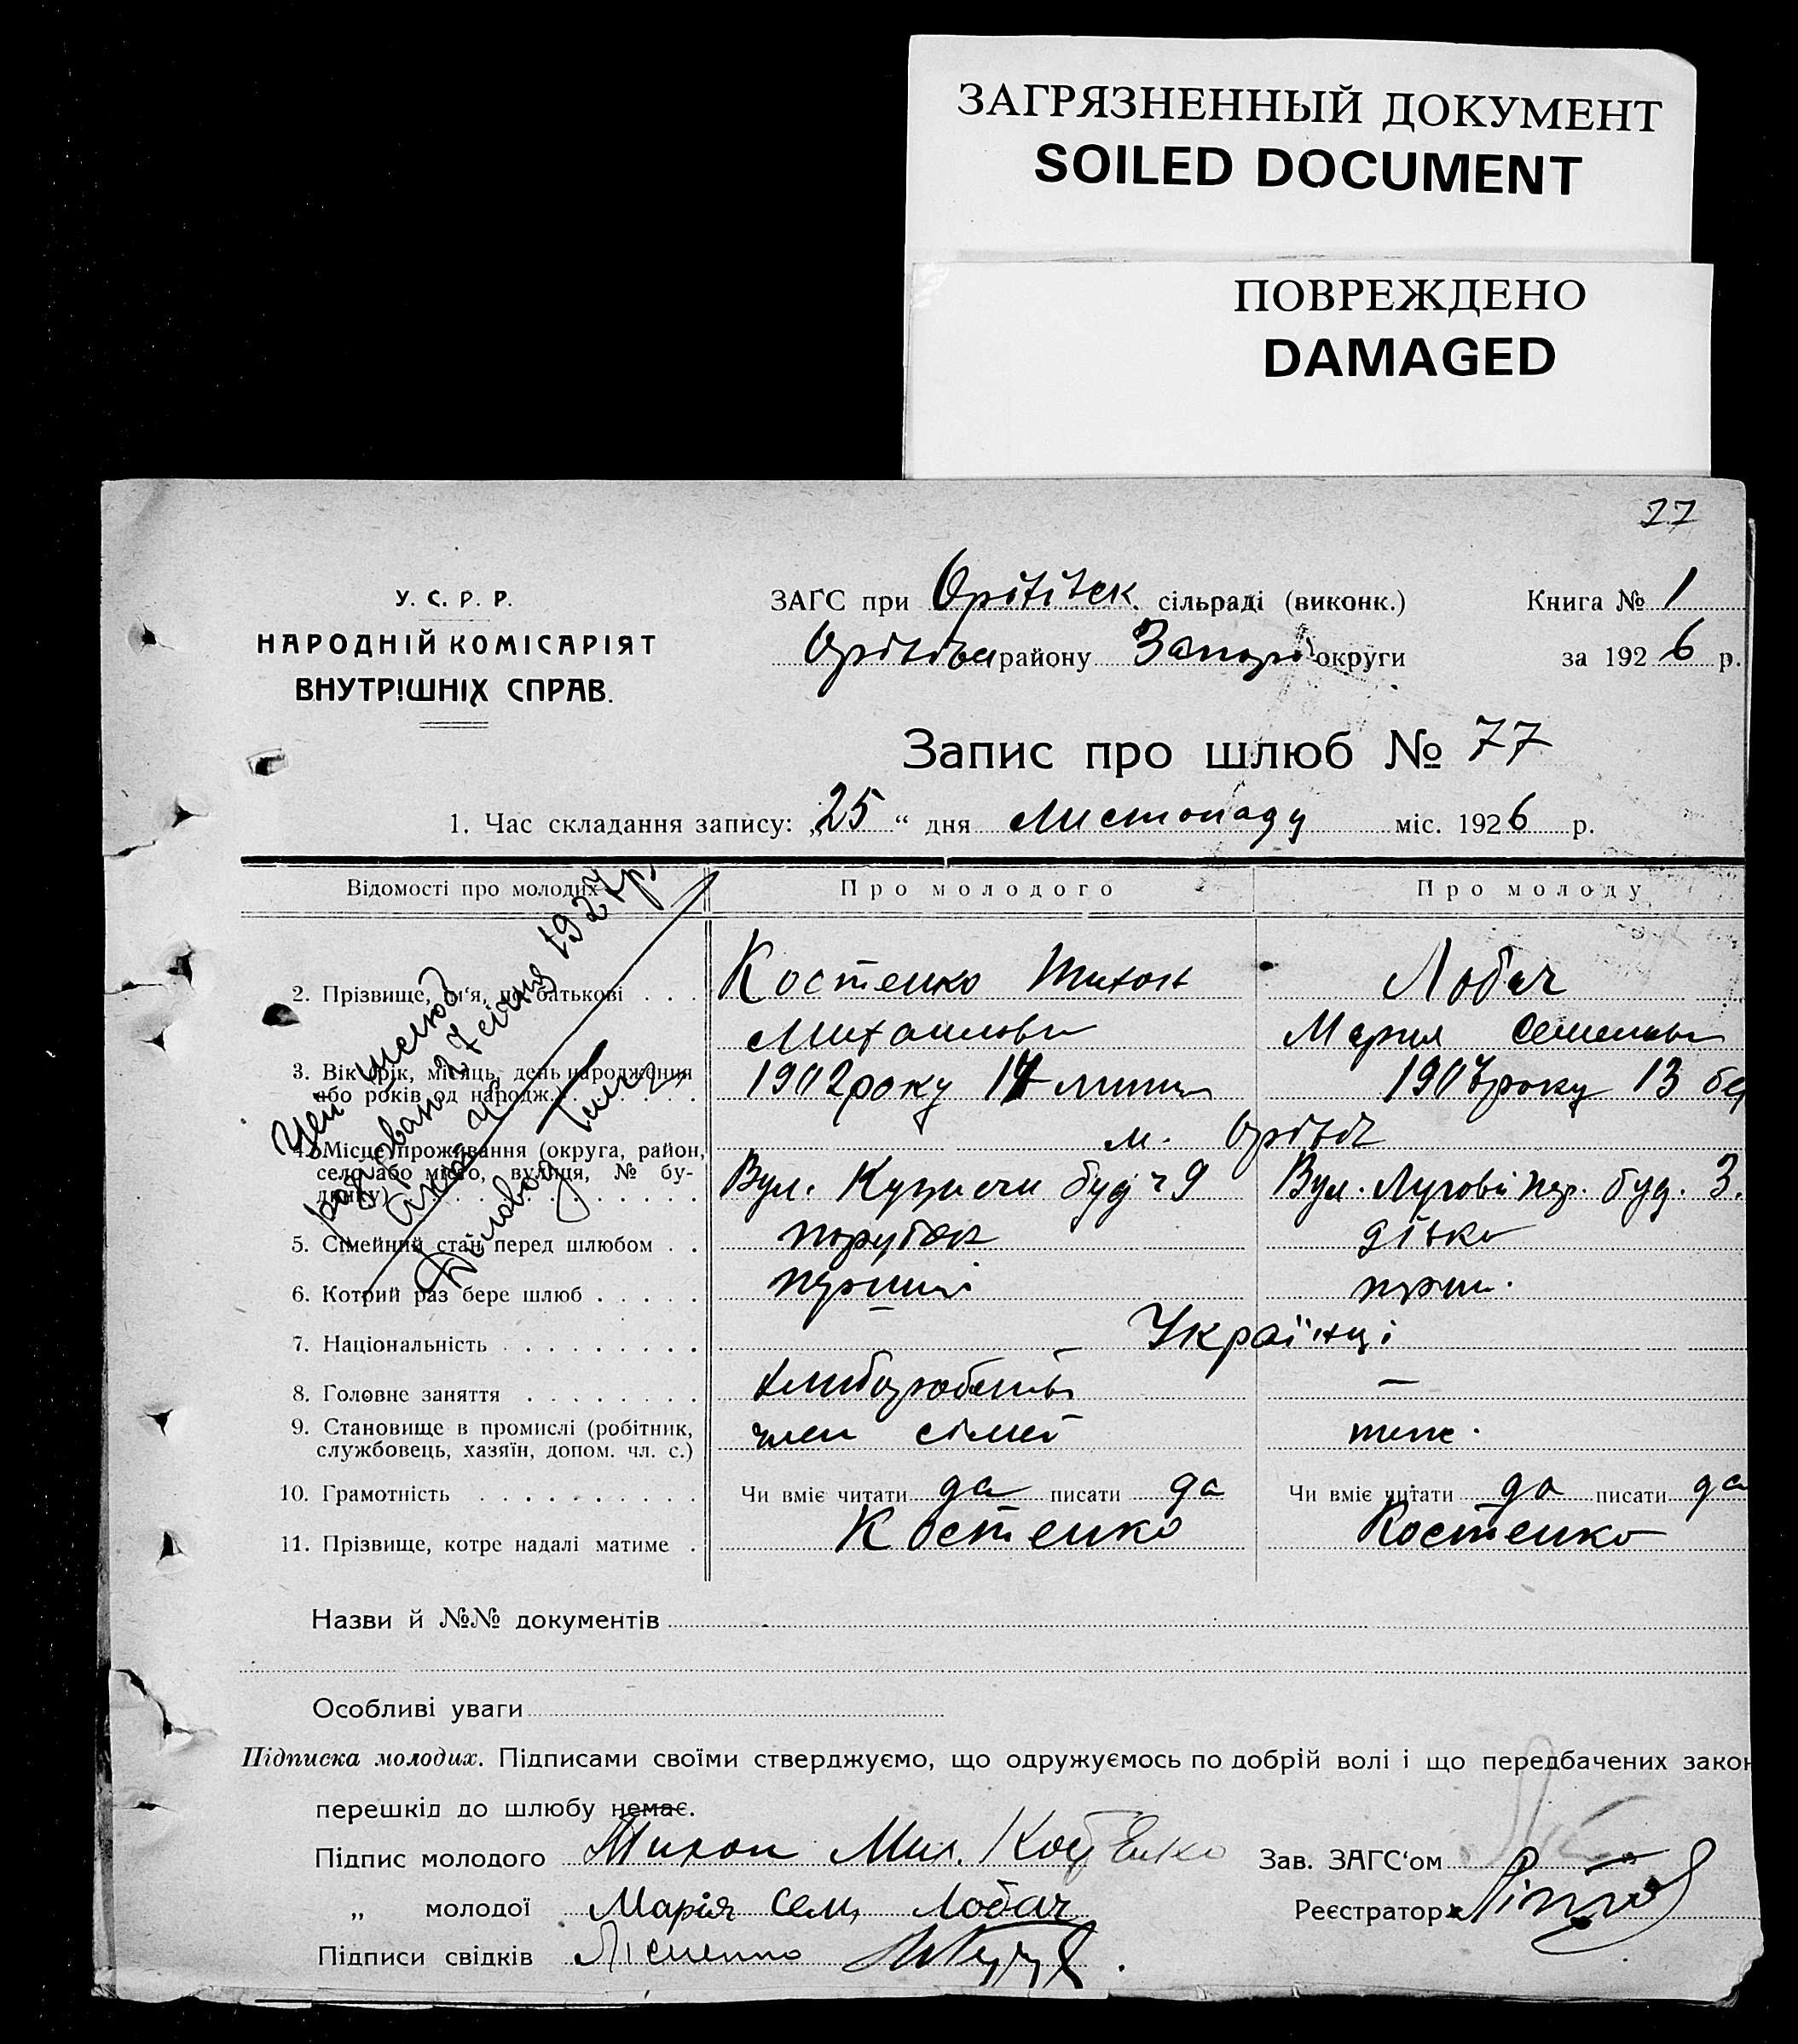 ЗАГРЯЗНЕННЫЙ ДОКУМЕНТ
SOILED DOCUMENT
ПОВРЕЖДЕНО
DAMAGED
27
У. С. Р. Р.
НАРОДНІЙ КОМІСАРІЯТ
ВНУТРІШНІХ СПРАВ.
ЗАГС при Оріхівск. сільраді (виконк.) Книга № 1
району округи за 1926 р.
Запис про шлюб № 77
1. Час складання запису: „25“ дня Листопаду міс. 1926 р.
Відомості про молодих Про молодого Про молоду
Цей шлюб
27 січня 1927 р.
2. Прізвище, ім‘я, по батькові . . . Костенко Тихон Лобач
Михайлов Мария Семенов
3. Вік (рік, місяць, день народження 1902 року 17 липня 1907 року 13 бе
або років од народж.) . . . . . . . .
м. Оріхів
4. Місце проживання (округа, район,
село або місто, вулиця, № бу- Вул. буд ч 9 Вул. Лугова буд. 3.
динку) . . . . . . . . . . . . . .
5. Сімейний стан перед шлюбом . . парубок дівка
6. Котрий раз бере шлюб . . . . . перший перш.
7. Національність . . . . . . . . . Українці
8. Головне заняття . . . . . . . . —
9. Становище в промислі (робітник, член сімей теж.
службовець, хазяїн, допом. чл. с.)
10. Грамотність . . . . . . . . . . Чи вміє читати да писати да Чи вміє читати да писати да
11. Прізвище, котре надалі матиме . Костенко Костенко
Назви й №№ документів
Особливі уваги
Підписка молодих. Підписами своїми стверджуємо, що одружуємось по добрій волі і що передбачених закон
перешкід до шлюбу немає.
Підпис молодого Тихон Мих. Костенко Зав. ЗАГС‘ом
„ молодої Марія Сем, Лобач Реєстратор
Підписи свідків